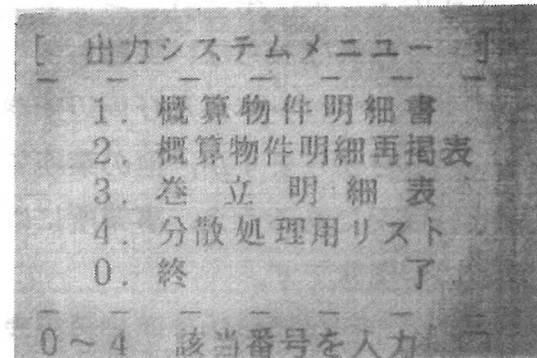 [ 出力システムメニュー ]
1. 概算物件明細書
2. 概算物件明細再掲表
3. 巻立明細表
4. 分散処理用リスト
0. 終了
0～4 該当番号を入力